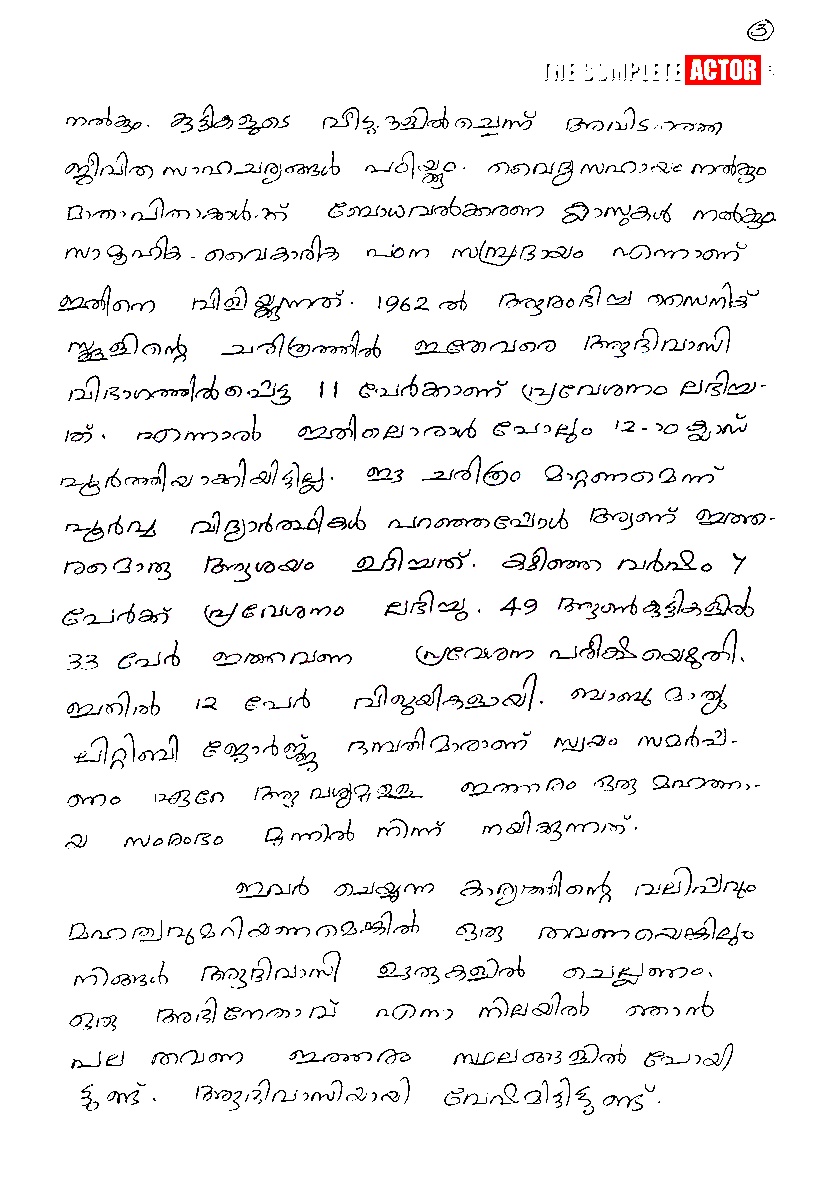 3
THE COMPLETE ACTOR
നൽകും. കുട്ടികളുടെ വീട്ടുകളിൽചെന്ന് അവിടത്തെ
ജീവിത സാഹചര്യങ്ങൾ പഠിയ്ക്കും. വൈദ്യസഹായം നൽകും
മാതാപിതാക്കൾക്ക് ബോധവൽക്കരണ ക്ലാസുകൾ നൽകും
സാമൂഹിക - വൈകാരിക പഠന സമ്പ്രദായം എന്നാണ്
ഇതിനെ വിളിയ്ക്കുന്നത്. 1962 ൽ ആരംഭിച്ച സൈനിക്
സ്കൂളിന്റെ ചരിത്രത്തിൽ ഇതേവരെ ആദിവാസി
വിഭാഗത്തിൽപ്പെട്ട 11 പേർക്കാണ് പ്രവേശനം ലഭിച്ച-
ത്. എന്നാൽ ഇതിലൊരാൾ പോലും 12-ാo ക്ലാസ്
പൂർത്തിയാക്കിയിട്ടില്ല. ഈ ചരിത്രം മാറ്റണമെന്ന്
പൂർവ്വ വിദ്യാർത്ഥികൾ പറഞ്ഞപ്പോൾ ആണ് ഇത്ത-
രമൊരു ആശയം ഉദിച്ചത്. കഴിഞ്ഞ വർഷം 7
പേർക്ക് പ്രവേശനം ലഭിച്ചു. 49 ആൺകുട്ടികളിൽ
33 പേർ ഇത്തവണ പ്രവേശന പരീക്ഷയെഴുതി.
ഇതിൽ 12 പേർ വിജയികളായി. ബാബു മാത്യു
ലിറ്റിബി ജോർജ്ജ് ദമ്പതിമാരാണ് സ്വയം സമർപ്പ-
ണം ഏറെ ആവശ്യമുള്ള ഇത്തരം ഒരു മഹത്താ-
യ സംരംഭം മുന്നിൽ നിന്ന് നയിക്കുന്നത്.
ഇവർ ചെയ്യുന്ന കാര്യത്തിന്റെ വലിപ്പവും
മഹത്വവുമറിയണമെങ്കിൽ ഒരു തവണയെങ്കിലും
നിങ്ങൾ ആദിവാസി ഊരുകളിൽ ചെല്ലണം.
ഒരു അഭിനേതാവ് എന്ന നിലയിൽ ഞാൻ
പല തവണ ഇത്തരം സ്ഥലങ്ങളിൽ പോയി
ട്ടുണ്ട്. ആദിവാസിയായി വേഷമിട്ടിട്ടുണ്ട്.